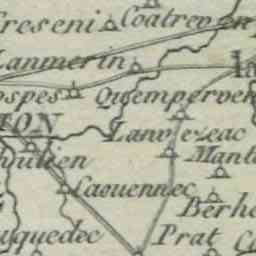 Creseni Coatreven
Lanmerin
ospes Quemperven
ION Lanvezeac
Mant
Caouennec
Berhe
uquedec Prat